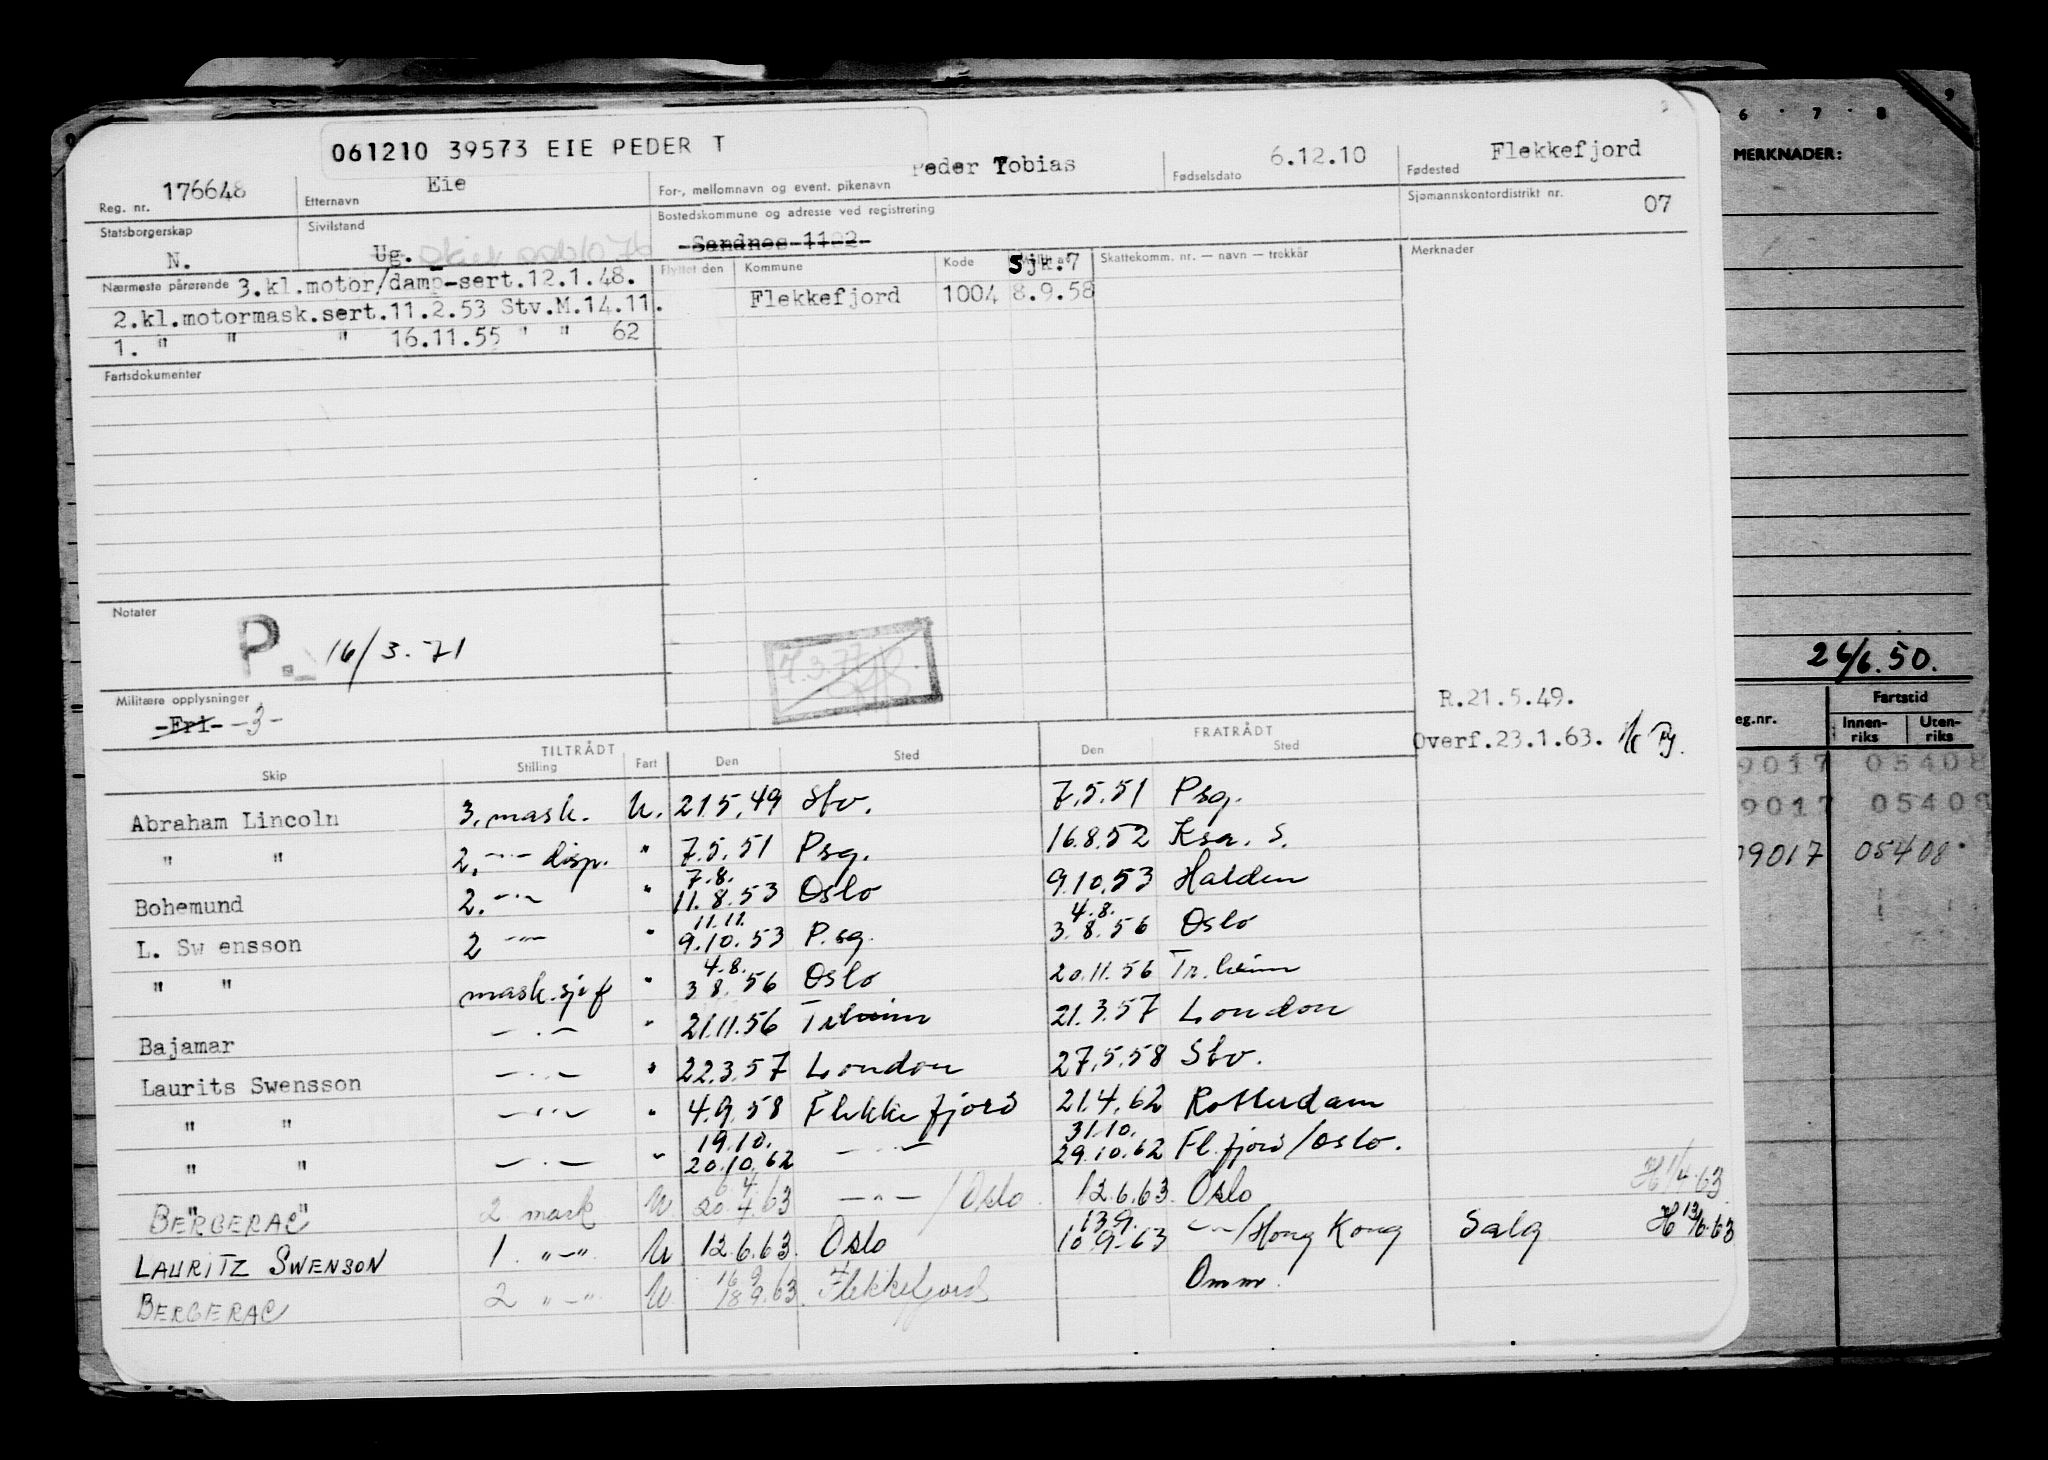 061210 39573 EIE PEDER T
Reg. nr. 176648 Etternavn Eie For-, mellomnavn og event. pikenavn Peder Tobias Fødselsdato 6.12.10 Fødested Flekkefjord
Statsborgerskap N. Sivilstand Ug. Bostedskommune og adresse ved registrering -Sandnes 1102- Sjømannskontordistrikt nr. 07
Nærmeste pårørende 3.kl.motor/damp-sert.12.1.48.
2.kl.motormask.sert.11.2.53 Stv.M.14.11.
1. " " " 16.11.55 " " 62
Flyttet den Kommune Kode Sjk.7 Skattekomm. nr. — navn — trekkår Merknader
Flekkefjord 1004 8.9.58
Fartsdokumenter
Notater
P. 16/3.71
Militære opplysninger
-Fri- -3-
R.21.5.49.
Overf.23.1.63.
TILTRÅDT FRATRÅDT
Skip Stilling Fart Den Sted Den Sted
Abraham Lincoln 3. mask. U. 21.5.49 Stv. 7.5.51 Psg.
" " 2. -"- disp. " 7.5.51 Psg. 16.8.52 Ksa. S.
7.8.
Bohemund 2. -"- " 11.8.53 Oslo 9.10.53 Halden
11.11. 4.8.
L. Swensson 2 -"- " 9.10.53 P.sg. 3.8.56 Oslo
4.8.
" " mask.sjef " 3 8.56 Oslo 20.11.56 Tr.heim
Bajamar -"- " 21.11.56 Tr.heim 21.3.57 London
Laurits Swensson -"- " 22.3.57 London 27.5.58 Stv.
" " -"- " 4.9.58 Flekkefjord 21.4.62 Rotterdam
19.10. 31.10.
" " -"- " 20.10.62 -"- 29.10.62 Fl.fjord/Oslo.
6.4.
BERGERAC 2 mask U 20.4.63 -"-/Oslo. 12.6.63. Oslo H 1/4.63
13.9.
LAURITZ SWENSON 1. "-" U 12.6.63. Oslo 10.9.63 -"-/Hong Kong Salg H 13/6.63
16 9
BERGERAC 2 "-" U. 18 9.63. Flekkefjord Omm.
6 · 7 · 8 9
MERKNADER:
26/6.50.
eg.nr. Fartstid
Innen-riks Uten-riks
9017 05408
9017 05408
09017 05408